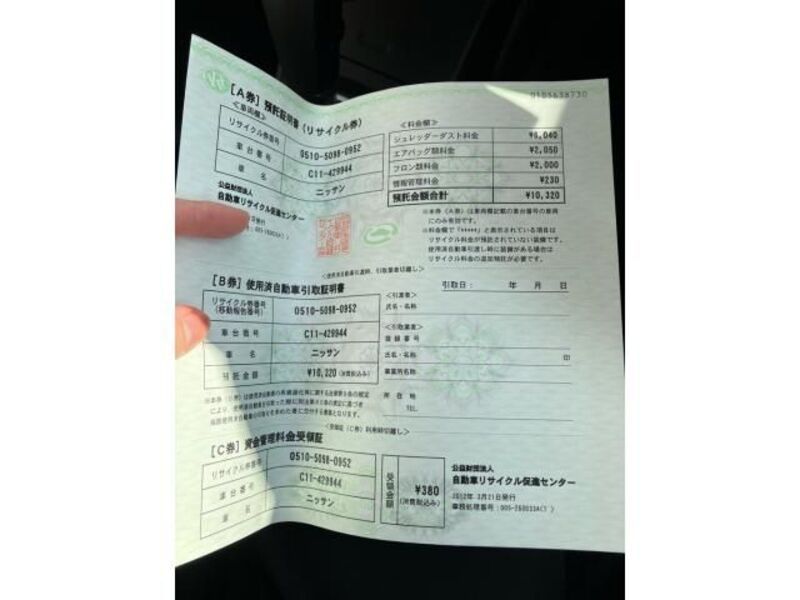 0105638730
[A券] 預託証明書(リサイクル券)
<車両欄>
リサイクル券番号 0510-5098-0952
車台番号 C11-429944
車名 ニッサン
<料金欄>
シュレッダーダスト料金 ¥6,040
エアバッグ類料金 ¥2,050
フロン類料金 ¥2,000
情報管理料金 ¥230
預託金額合計 ¥10,320
公益財団法人
自動車リサイクル促進センター
※本券(A券)は車両欄記載の車台番号の車両
にのみ有効です。
※料金欄で「*****」と表示されている項目は
リサイクル料金が預託されていない装備です。
使用済自動車引渡し時に装備がある場合は
リサイクル料金の追加預託が必要です。
<使用済自動車引渡時、引取業者切離し>
[B券] 使用済自動車引取証明書
リサイクル券番号
(移動報告番号) 0510-5098-0952
車台番号 C11-429944
車名 ニッサン
預託金額 ¥10,320(消費税込み)
引取日: 年 月 日
<引渡者>
氏名・名称
<引取業者>
登録番号
氏名・名称 印
事業所名称
所在地
TEL.
[C券] 資金管理料金受領証
リサイクル券番号 0510-5098-0952
車台番号 C11-429944
車名 ニッサン
受領金額 ¥380
(消費税込み)
公益財団法人
自動車リサイクル促進センター
2012年 3月21日発行